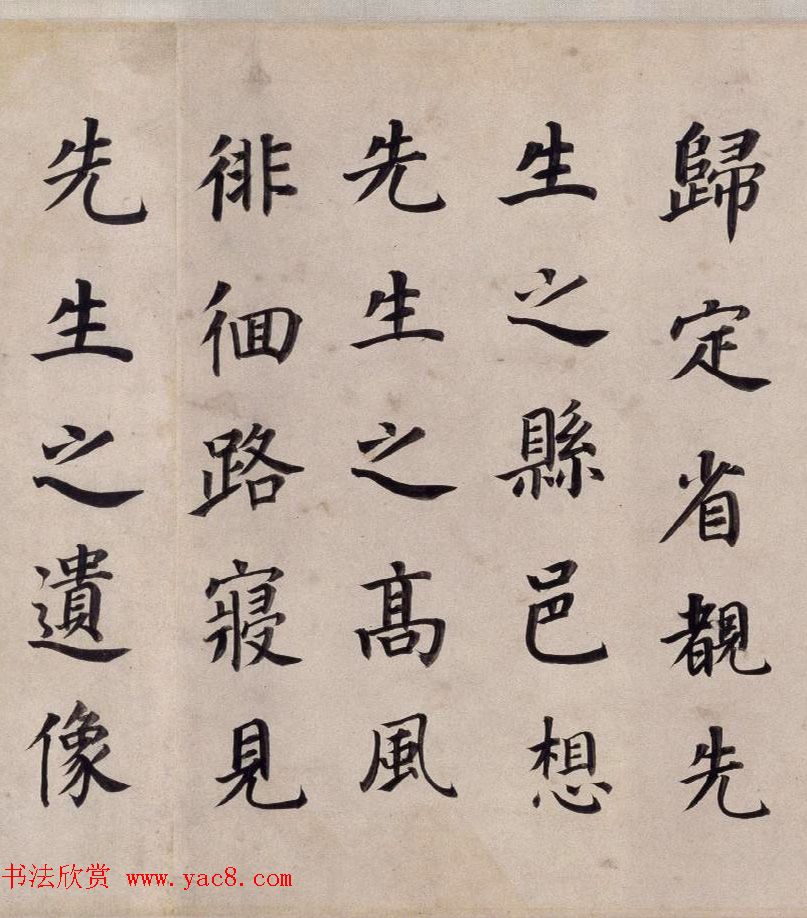 歸定省覩先
生之縣邑想
先生之高風
徘徊路寢見
先生之遺像
书法欣赏 www.yac8.com